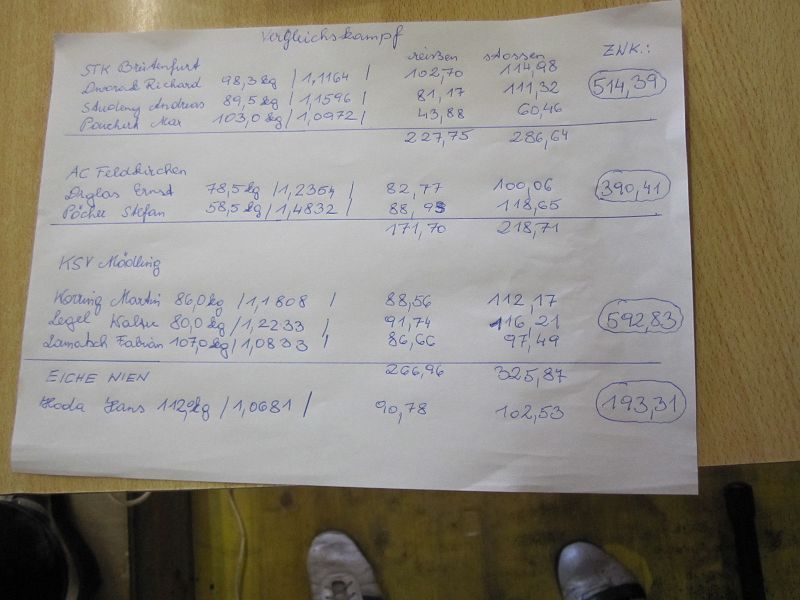 Vergleichskampf
reißen stossen ZNK.:
STK Breitenfurt
Dworak Richard 98,3 kg / 1,1164 / 102,70 114,98 514,39
Studeny Andreas 89,5 kg / 1,1596 / 81,17 111,32
103,0 kg / 1,0972 / 43,88 60,46
227,75 286,64
AC Feldkirchen
Diglas Ernst 78,5 kg / 1,2354 / 82,77 100,06 390,41
Pöcher Stefan 58,5 kg / 1,4832 / 88,93 118,65
171,70 218,71
KSV Mödling
Martin 86,0 kg / 1,1808 / 88,56 112,17
80,0 kg / 1,2233 / 91,74 116,21 592,83
Fabian 107,0 kg / 1,0833 / 86,66 97,49
266,96 325,87
EICHE WIEN
Hoda Hans 112,0 kg / 1,0681 / 90,78 102,53 193,31